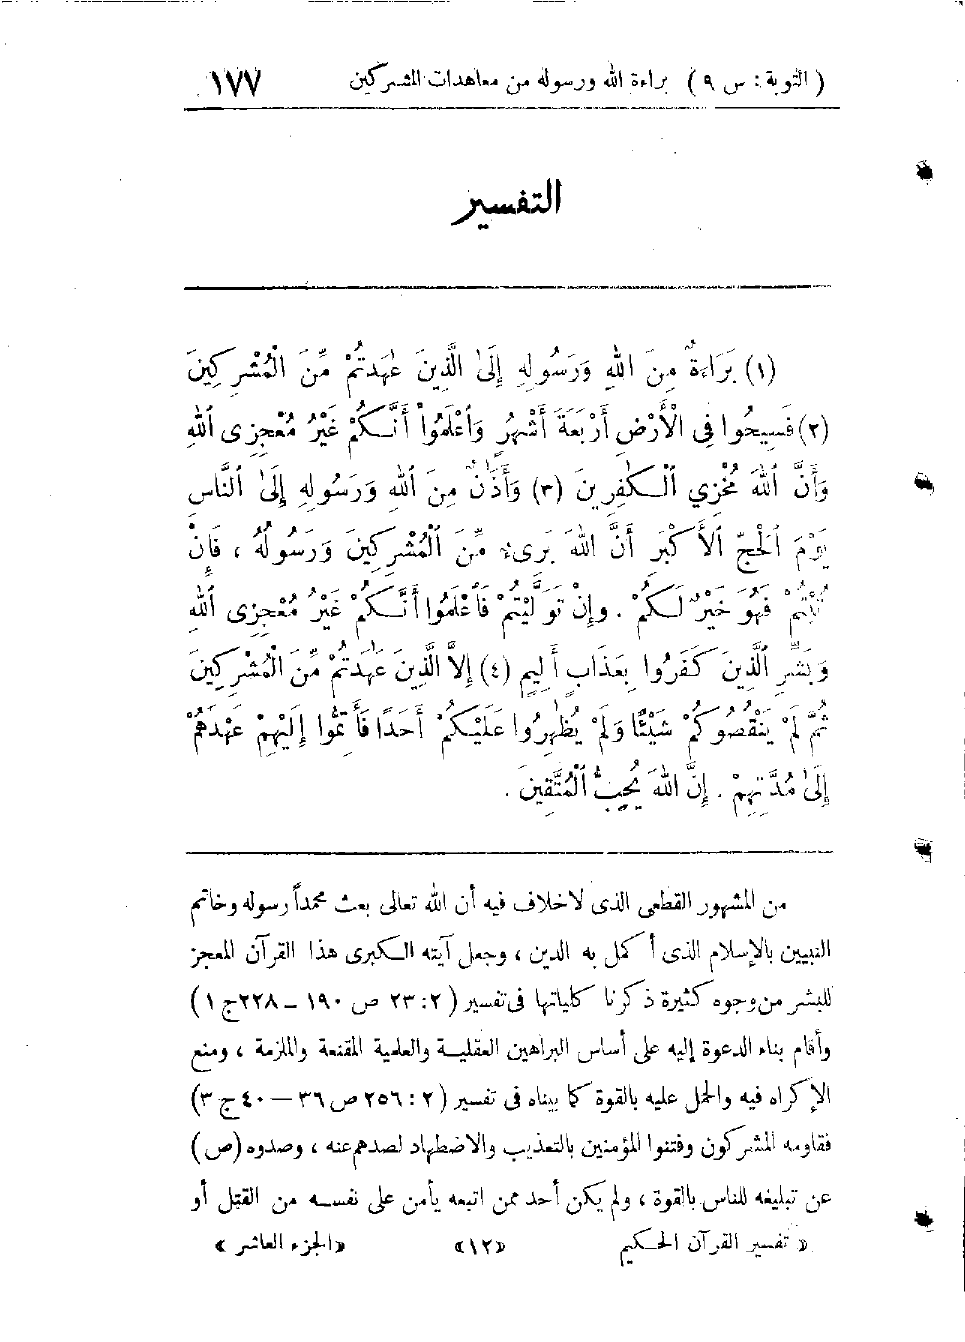 ( التوبة : س ٩ ) براءة الله ورسوله من معاهدات المشركين ١٧٧
التفسير
(١) بَرَاءَةٌ مِنَ اللهِ وَرَسُولِهِ إِلَىٰ الَّذِينَ عَٰهَدتُمْ مِّنَ الْمُشْرِكِينَ
(٢) فَسِيحُوا فِى الْأَرْضِ أَرْبَعَةَ أَشْهُرٍ وَٱعْلَمُواْ أَنَّكُمْ غَيْرُ مُعْجِزِى ٱللهِ
وَأَنَّ ٱللهَ مُخْزِي ٱلْكَٰفِرِينَ (٣) وَأَذَٰنٌ مِنَ ٱللهِ وَرَسُولِهِ إِلَىٰ ٱلنَّاسِ
يَوْمَ ٱلْحَجِّ ٱلأَكْبَرِ أَنَّ اللهَ بَرِىءٌ مِّنَ ٱلْمُشْرِكِينَ وَرَسُولُهُ ، فَإِنْ
تُبْتُمْ فَهُوَ خَيْرٌ لَكُمْ . وإِنْ تَوَلَّيْتُمْ فَٱعْلَمُوا أَنَّكُمْ غَيْرُ مُعْجِزِى ٱللهِ
وَبَشِّرِ ٱلَّذِينَ كَفَرُوا بِعَذَابٍ أَلِيمٍ (٤) إِلاَّ الَّذِينَ عَٰهَدتُمْ مِّنَ الْمُشْرِكِينَ
ثُمَّ لَمْ يَنْقُصُوكُمْ شَيْئًا وَلَمْ يُظَٰهِرُوا عَلَيْكُمْ أَحَدًا فَأَتِمُّوا إِلَيْهِمْ عَهْدَهُمْ
إِلَىٰ مُدَّتِهِمْ . إِنَّ اللهَ يُحِبُّ ٱلْمُتَّقِينَ .
من المشهور القطعى الذى لاخلاف فيه أن الله تعالى بعث محمداً رسوله وخاتم
النبيين بالإسلام الذى أكمل به الدين ، وجعل آيته الكبرى هذا القرآن المعجز
للبشر من وجوه كثيرة ذكرنا كلياتها فى تفسير ( ٢ : ٢٣ ص ١٩٠ – ٢٢٨ ج ١ )
وأقام بناء الدعوة إليه على أساس البراهين العقلية والعلمية المقنعة والملزمة ، ومنع
الإكراه فيه والحمل عليه بالقوة كما بيناه فى تفسير ( ٢ : ٢٥٦ ص ٣٦ – ٤٠ ج ٣ )
فقاومه المشركون وفتنوا المؤمنين بالتعذيب والاضطهاد لصدهم عنه ، وصدوه (ص)
عن تبليغه للناس بالقوة ، ولم يكن أحد ممن اتبعه يأمن على نفسه من القتل أو
« تفسير القرآن الحكيم «١٢» «الجزء العاشر »